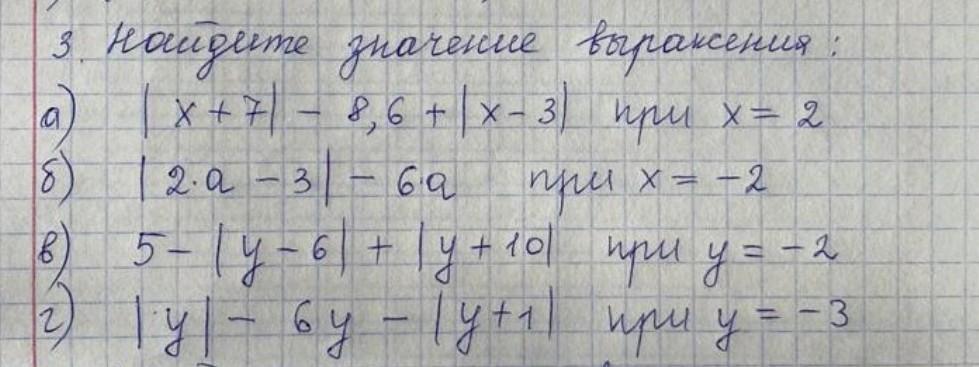 3. Найдите значение выражения:
а) |x+7| - 8,6 + |x-3| при x = 2
б) |2·a - 3| - 6·a при x = -2
в) 5 - |y-6| + |y+10| при y = -2
г) |y| - 6y - |y+1| при y = -3